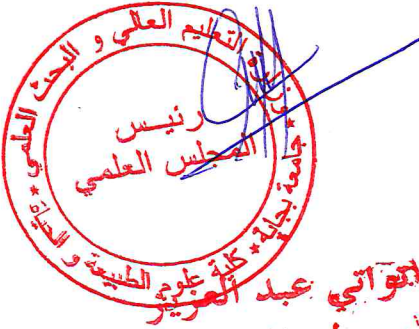 وزارة التعليم العالي و البحث العلمي
جامعة بجاية * كلية علوم الطبيعة و الحياة *
رئيس
المجلس العلمي
عبد العزيز